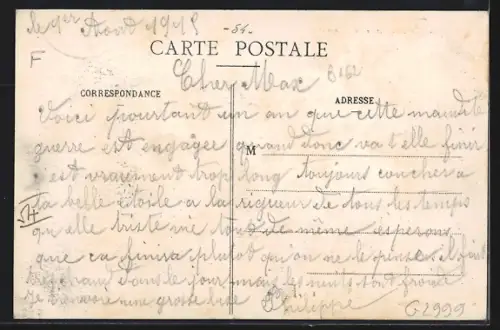 le 1er Aout 1915
- 54 -
CARTE POSTALE
F
Cher Max
CORRESPONDANCE
ADRESSE
Voici pourtant un an que cette maudite
guerre est engagee quand donc va t elle finir
M
c est vraiment trop long toujours coucher a
la belle etoile a la rigueur de tous les temps
54
qu elle triste vie tout de meme esperons
que ca finira plutot qu on ne le pense il fait
tres chaud dans le jour mais les nuits sont froides
Je t envoie une grosse bise Philippe
G2999